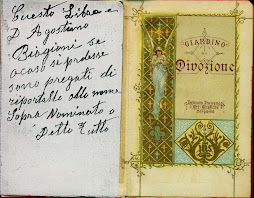 Cuesto Libro e
D Agostino
Biagioni se
acaso si perdesse
sono pregati di
riportallo allo nome
Sopra Nominato o
Ditto Tutto
GIARDINO
DI
DIVOZIONE